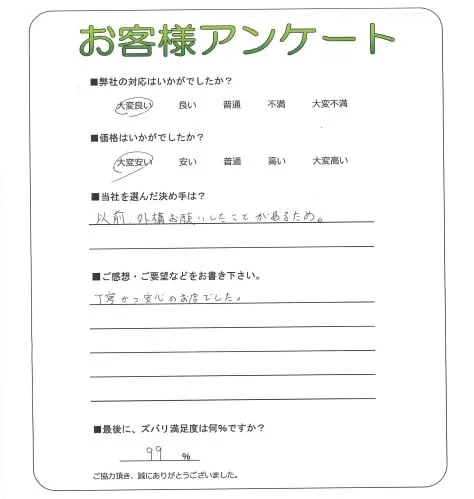 お客様アンケート
■弊社の対応はいかがでしたか？
大変良い 良い 普通 不満 大変不満
■価格はいかがでしたか？
大変安い 安い 普通 高い 大変高い
■当社を選んだ決め手は？
以前、外構お願いしたことがあるため。
■ご感想・ご要望などをお書き下さい。
丁寧かつ安心のお店でした。
■最後に、ズバリ満足度は何%ですか？
99 %
ご協力頂き、誠にありがとうございました。